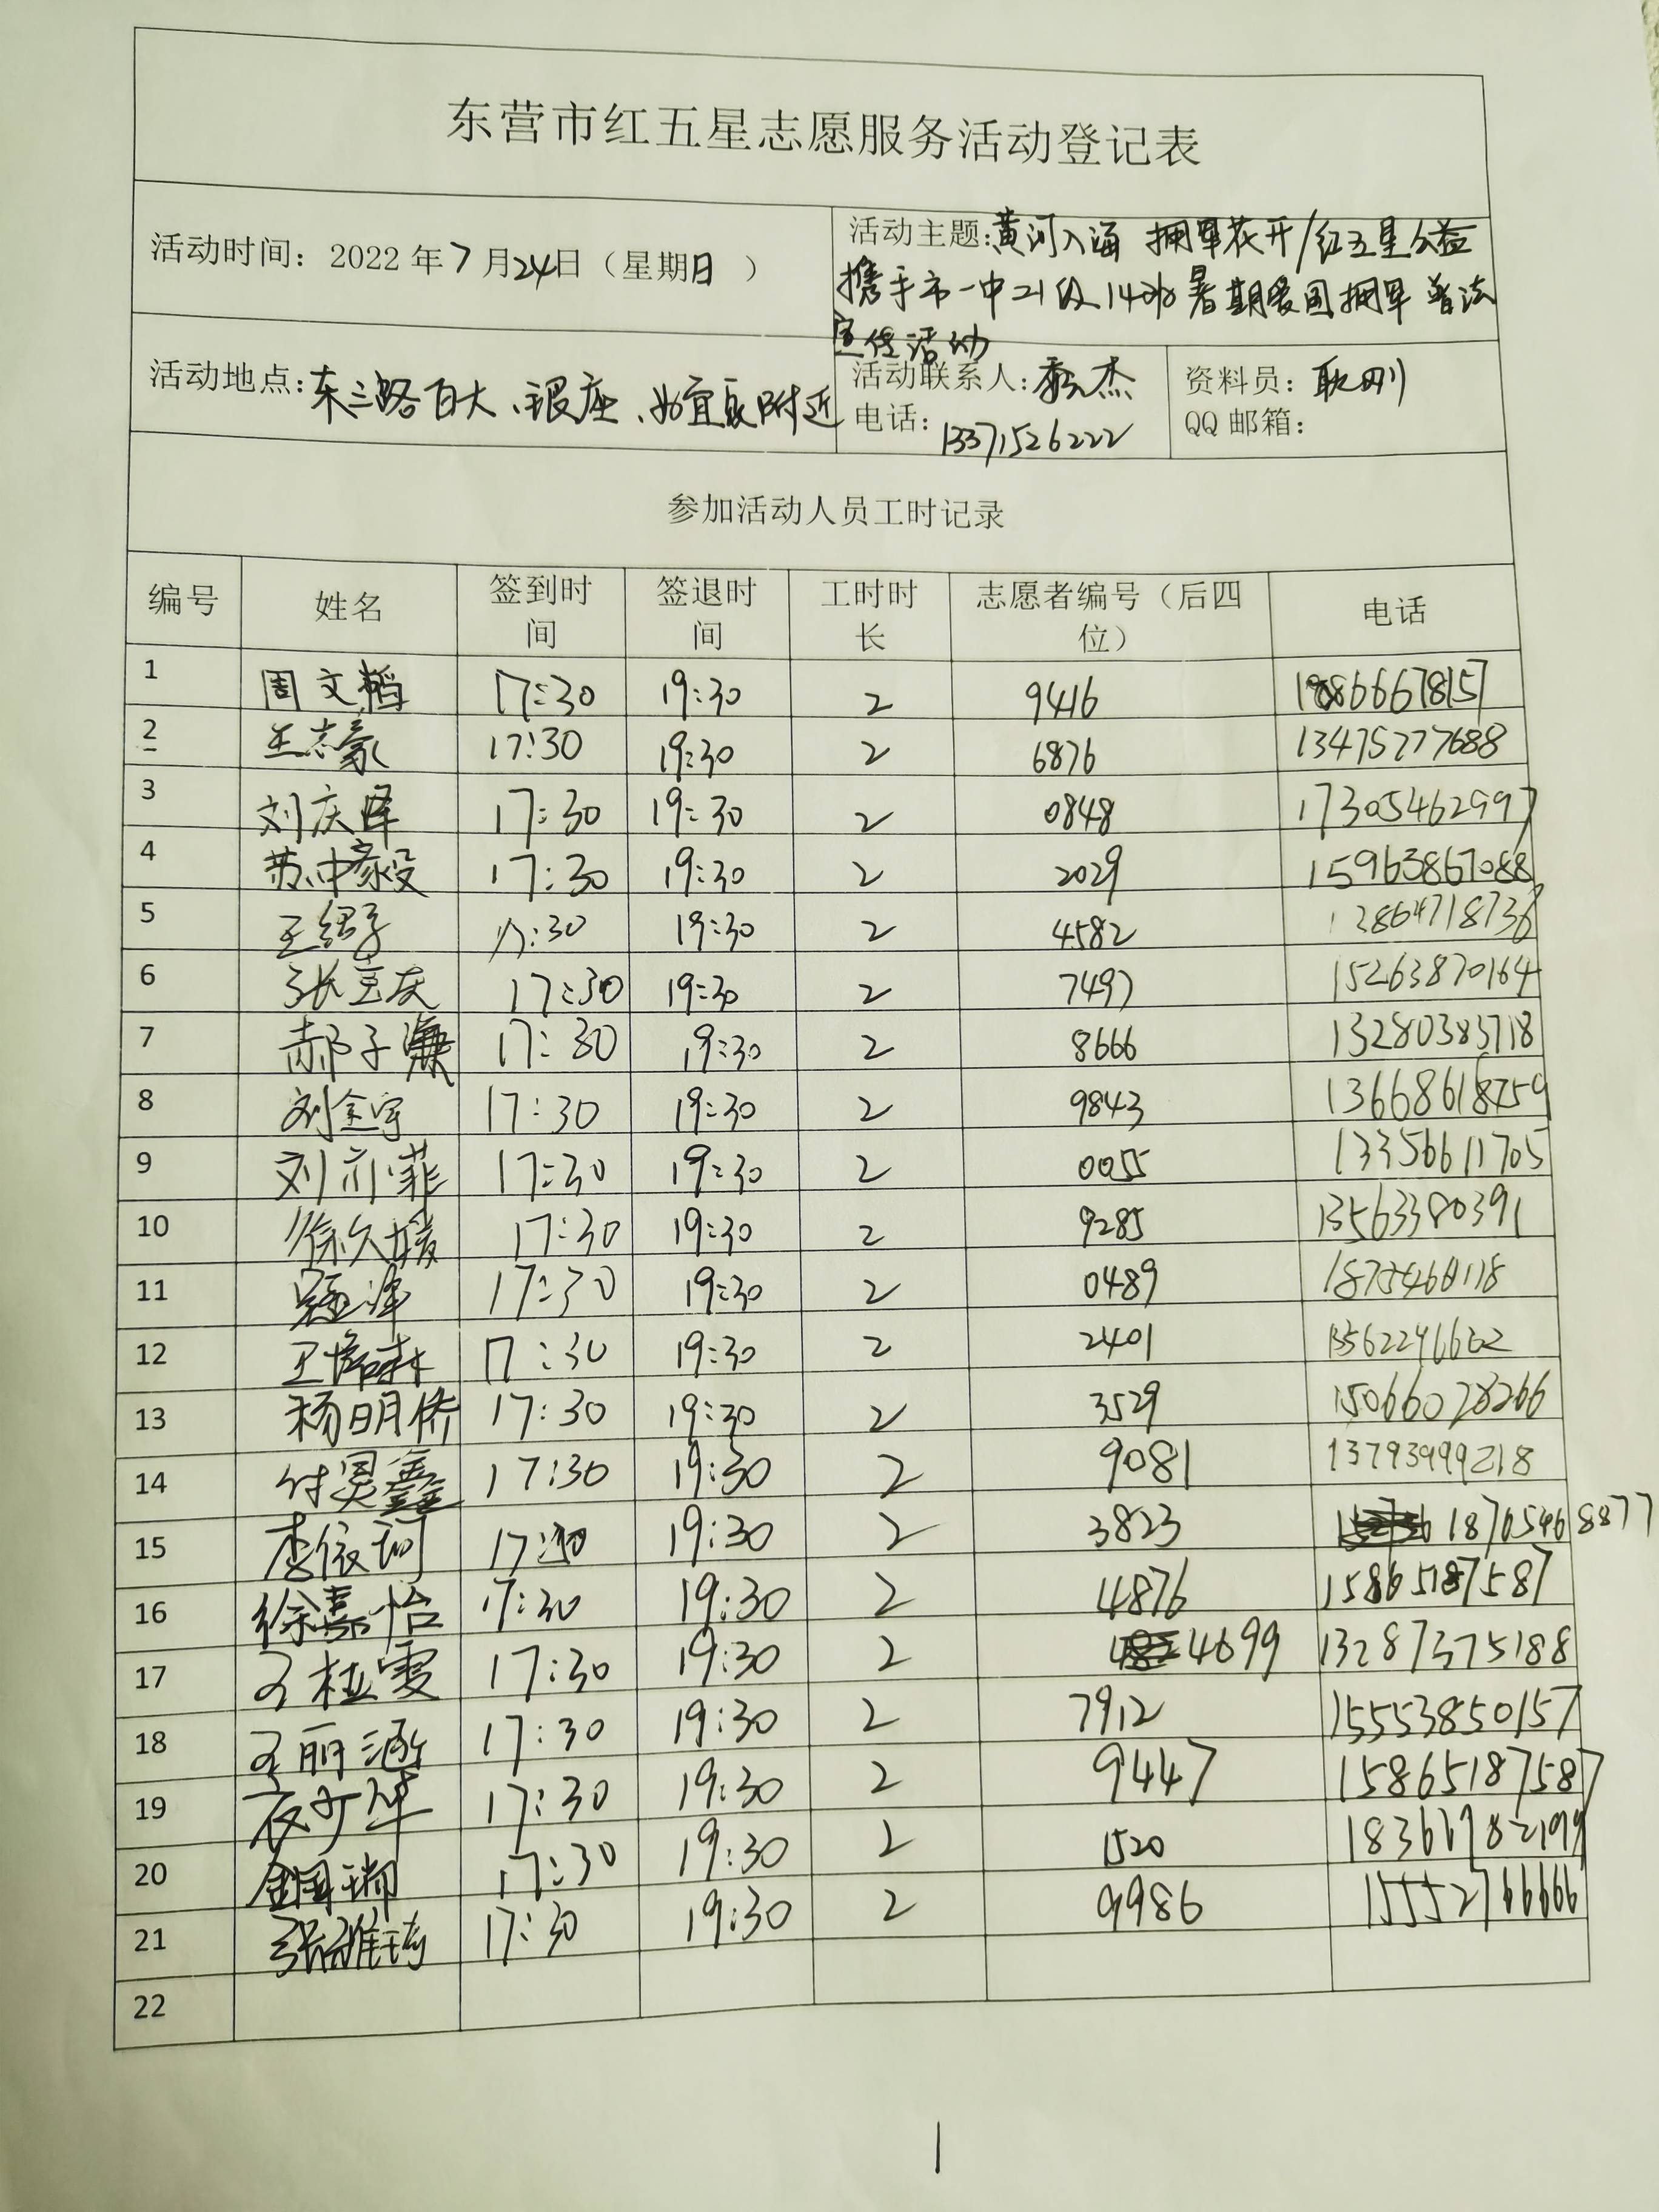 东营市红五星志愿服务活动登记表
活动时间：2022年7月24日（星期日 ）
活动主题:黄河入海 拥军花开/红五星公益
携手市一中21级14班暑期爱国拥军普法
宣传活动
活动地点:东三路百大、银座、如宜家附近
活动联系人: 杰
电话：13371526222
资料员：耿刚
QQ邮箱：
参加活动人员工时记录
编号 姓名 签到时间 签退时间 工时时长 志愿者编号（后四位） 电话
1 周文韬 17:30 19:30 2 9416
2 王志豪 17:30 19:30 2 6876 13475277688
3 刘庆泽 17:30 19:30 2 0848 17305462997
4 苏中毅 17:30 19:30 2 2029 15963867088
5 17:30 19:30 2 4582
6 17:30 19:30 2 7497 15263870164
7 郝子濂 17:30 19:30 2 8666 13280383718
8 刘金宇 17:30 19:30 2 9843
9 刘亦菲 17:30 19:30 2 0055 13356611705
10 徐久媛 17:30 19:30 2 9285 13563380391
11 17:30 19:30 2 0489
12 17:30 19:30 2 2401
13 杨明侨 17:30 19:30 2 3529 15066028266
14 付昊鑫 17:30 19:30 2 9081 13793999218
15 李依珂 17:30 19:30 2 3823 18765468877
16 徐嘉怡 17:30 19:30 2 4876 15865187587
17 王桂雯 17:30 19:30 2 4699 13287375188
18 王丽涵 17:30 19:30 2 7912 15553850157
19 17:30 19:30 2 9447 15865187587
20 金国瑞 17:30 19:30 2 1520
21 张雅琦 17:30 19:30 2 9986 15552766666
22
1